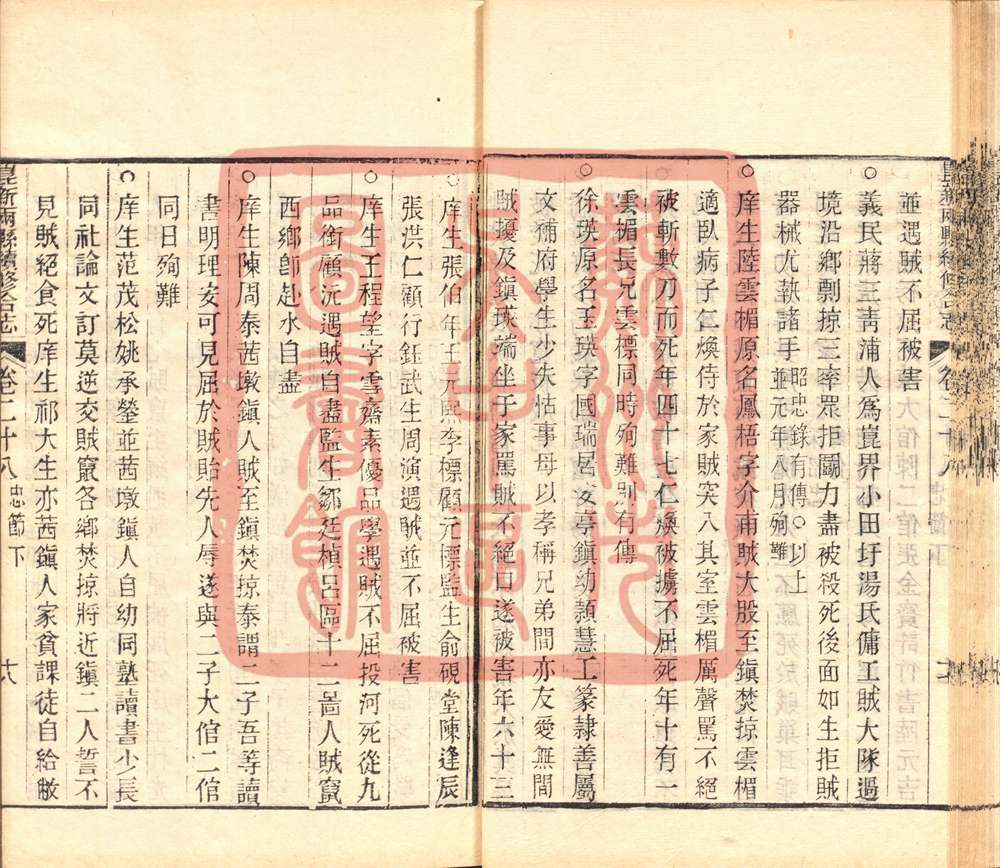 並遇賊不屈被害
○義民蔣三靑浦人爲崑界小田圩湯氏傭工賊大隊過
境沿鄉剽掠三率眾拒鬬力盡被殺死後面如生拒賊
器械尤執諸手昭忠錄有傳○以上
並元年八月殉難
○庠生陸雲楣原名鳳梧字介甫賊大股至鎭焚掠雲楣
適臥病子仁煥侍於家賊突入其室雲楣厲聲罵不絕
被斬數刀而死年四十七仁煥被擄不屈死年十有一
雲楣長兄雲標同時殉難別有傳
○徐瑛原名玉瑛字國瑞居亭鎭幼頴慧工篆隸善屬
文補府學生少失怙事母以孝稱兄弟間亦友愛無間
賊擾及鎭瑛端坐于家罵賊不絕口遂被害年六十三
○庠生張伯年王元熙李標顧元標監生俞硯堂陳逢辰
張洪仁顧行鈺武生周演遇賊並不屈被害
○庠生王程望字雲齋素優品學遇賊不屈投河死從九
品銜顧沅遇賊自盡監生鄒廷楨呂區十二啚人賊竄
西鄉卽赴水自盡
○庠生陳周泰茜墩鎭人賊至鎭焚掠泰謂二子吾等讀
書明理安可見屈於賊貽先人辱遂與二子大倌二倌
同日殉難
○庠生范茂松姚承瑩並茜墩鎭人自幼同塾讀書少長
同社論文訂莫逆交賊竄各鄉焚掠將近鎭二人誓不
見賊絕食死庠生祁大生亦茜鎭人家貧課徒自給敝
崑新兩縣續修合志 卷二十八 忠節下